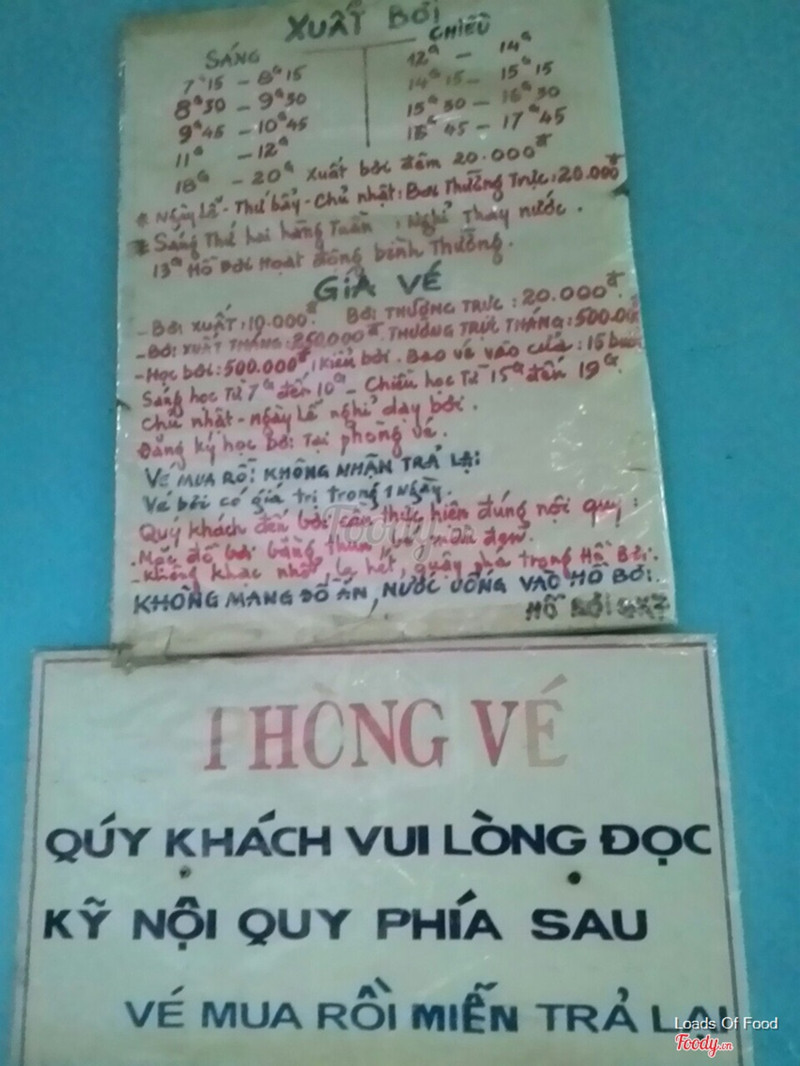 XUẤT BƠI
SÁNG CHIỀU
7G15 - 8G15 12G - 14G
8G30 - 9G30 14G15 - 15G15
9G45 - 10G45 15G30 - 16G30
11G - 12G 16G45 - 17G45
18G - 20G Xuất bơi đêm 20.000đ
* Ngày Lễ - Thứ bảy - Chủ nhật: Bơi Thường Trực: 20.000đ
* Sáng Thứ hai hàng Tuần: Nghỉ Thay nước.
13G Hồ Bơi Hoạt động bình Thường.
GIÁ VÉ
- Bơi XUẤT: 10.000đ Bơi THƯỢNG TRỰC: 20.000đ
- Bơi XUẤT THÁNG: 250.000đ THƯỜNG TRỰC THÁNG: 500.00
- Học bơi: 500.000đ, 1 Kiểu bơi. Bao vé vào cửa: 15 buổi
Sáng học Từ 7G đến 10G - Chiều học Từ 15G đến 19G.
Chủ nhật - ngày Lễ nghỉ dạy bơi.
Đăng ký học Bơi Tại phòng vé.
VÉ MUA RỒI KHÔNG NHẬN TRẢ LẠI
Vé bơi có giá trị trong 1 ngày.
Quý khách đến bơi cần thực hiện đúng nội quy:
- Mặc đồ bơi bằng thun,
- Không khạc nhổ, la hét, quậy phá trong Hồ Bơi.
KHÔNG MANG ĐỒ ĂN, NƯỚC UỐNG VÀO HỒ BƠI.
HỒ BƠI
PHÒNG VÉ
QÚY KHÁCH VUI LÒNG ĐỌC
KỸ NỘI QUY PHÍA SAU
VÉ MUA RỒI MIỄN TRẢ LẠI
Loads Of Food
Foody.vn